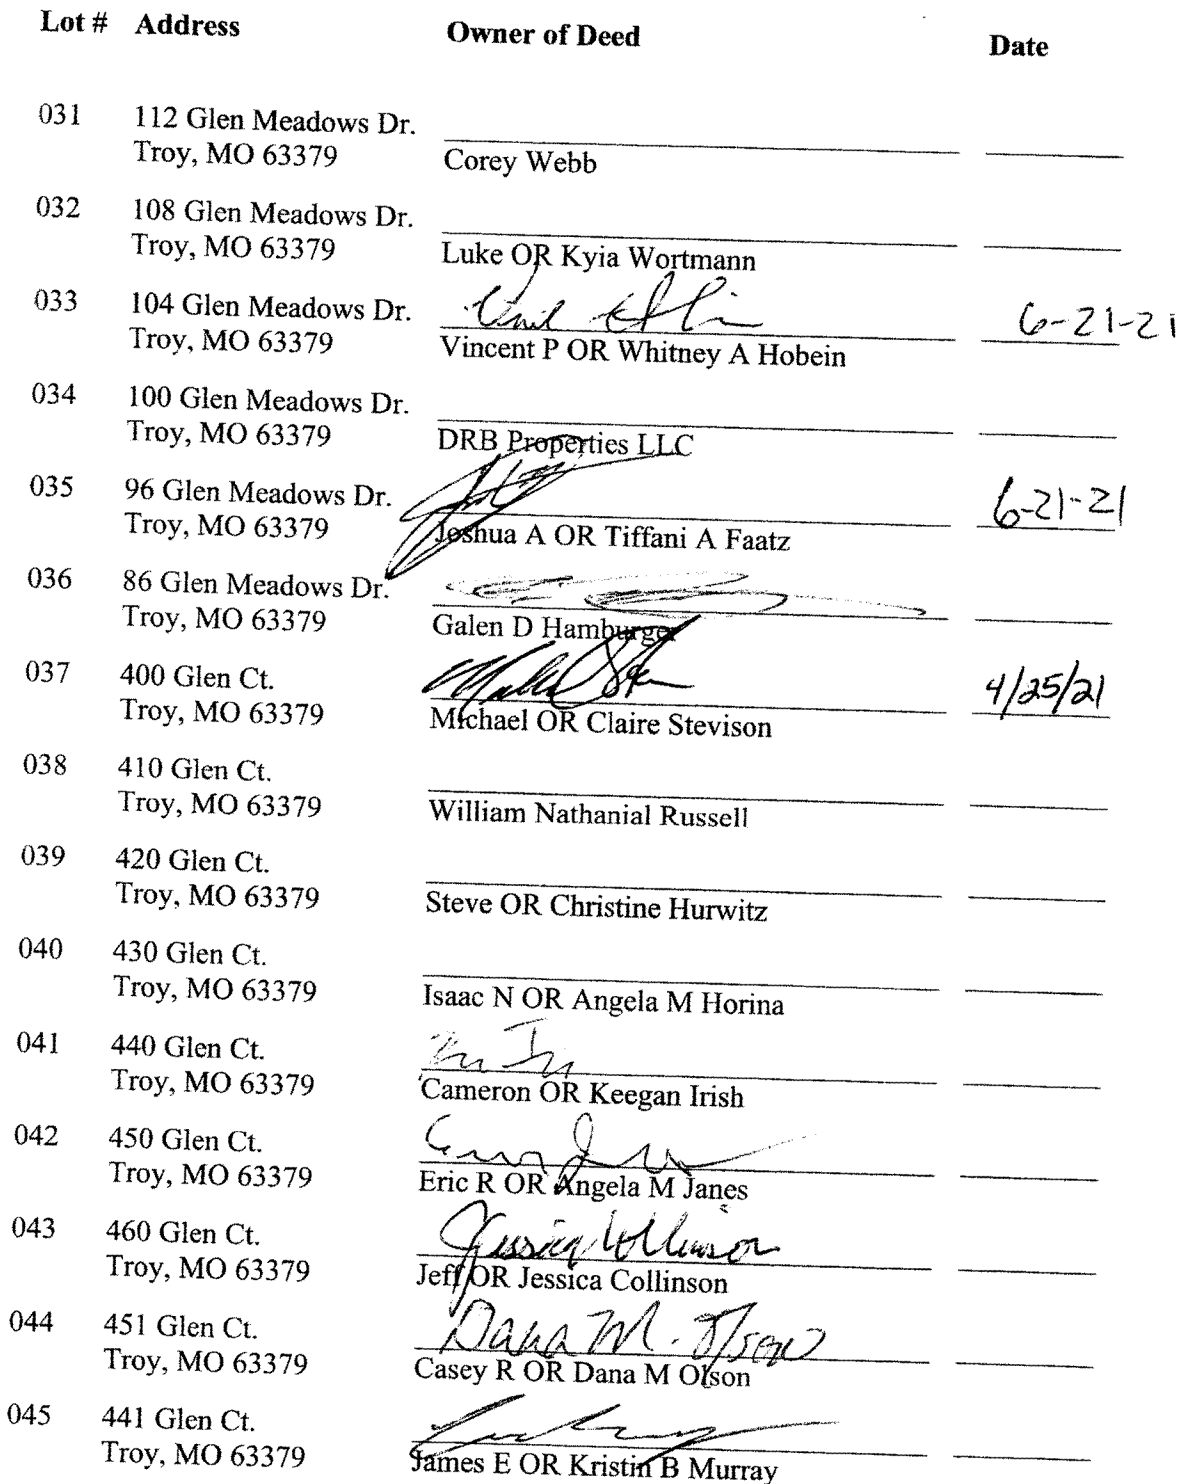 Lot # Address Owner of Deed Date
031 112 Glen Meadows Dr.
Troy, MO 63379 Corey Webb
032 108 Glen Meadows Dr.
Troy, MO 63379 Luke OR Kyia Wortmann
033 104 Glen Meadows Dr. 6-21-21
Troy, MO 63379 Vincent P OR Whitney A Hobein
034 100 Glen Meadows Dr.
Troy, MO 63379 DRB Properties LLC
035 96 Glen Meadows Dr. 6-21-21
Troy, MO 63379 Joshua A OR Tiffani A Faatz
036 86 Glen Meadows Dr.
Troy, MO 63379 Galen D Hamburger
037 400 Glen Ct. 4/25/21
Troy, MO 63379 Michael OR Claire Stevison
038 410 Glen Ct.
Troy, MO 63379 William Nathanial Russell
039 420 Glen Ct.
Troy, MO 63379 Steve OR Christine Hurwitz
040 430 Glen Ct.
Troy, MO 63379 Isaac N OR Angela M Horina
041 440 Glen Ct.
Troy, MO 63379 Cameron OR Keegan Irish
042 450 Glen Ct.
Troy, MO 63379 Eric R OR Angela M Janes
043 460 Glen Ct. Jessica Collinson
Troy, MO 63379 Jeff OR Jessica Collinson
044 451 Glen Ct. Dana M. Olson
Troy, MO 63379 Casey R OR Dana M Olson
045 441 Glen Ct.
Troy, MO 63379 James E OR Kristin B Murray